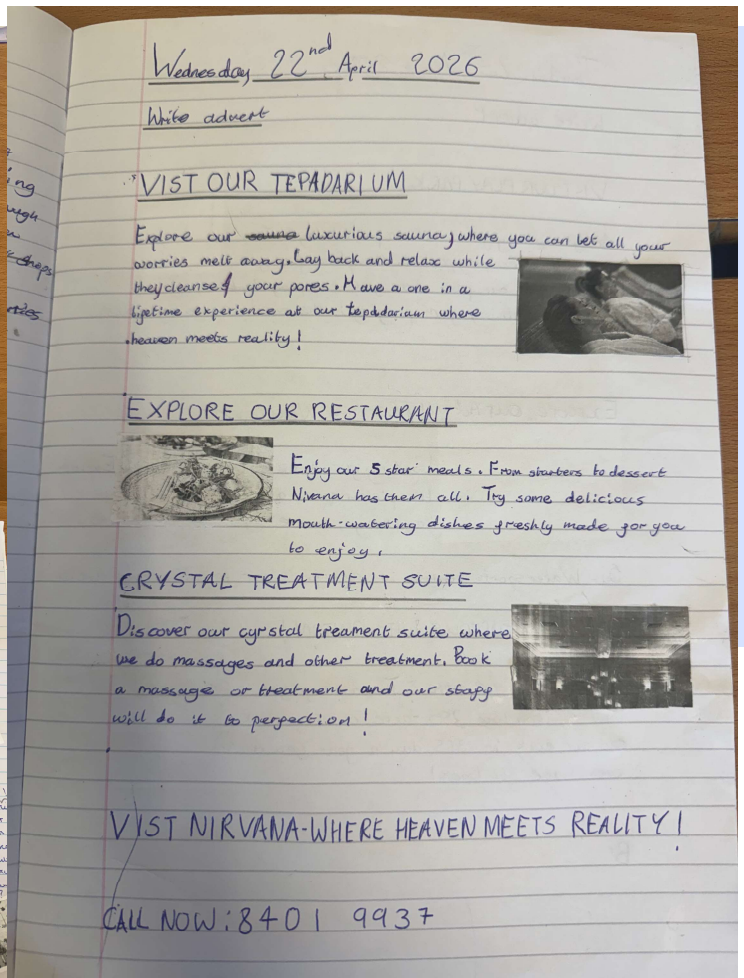 Wednesday 22nd April 2026
Write advert
VIST OUR TEPADARIUM
Explore our sauna luxurious sauna, where you can let all your
worries melt away. Lay back and relax while
they cleanse your pores. Have a one in a
lifetime experience at our tepadarium where
heaven meets reality!
EXPLORE OUR RESTAURANT
Enjoy our 5 star meals. From starters to dessert
Nivana has them all. Try some delicious
mouth-watering dishes freshly made for you
to enjoy.
CRYSTAL TREATMENT SUITE
Discover our cyrstal treament suite where
we do massages and other treatment. Book
a massage or treatment and our staff
will do it to perfection!
VIST NIRVANA-WHERE HEAVEN MEETS REALITY!
CALL NOW: 8401 9937